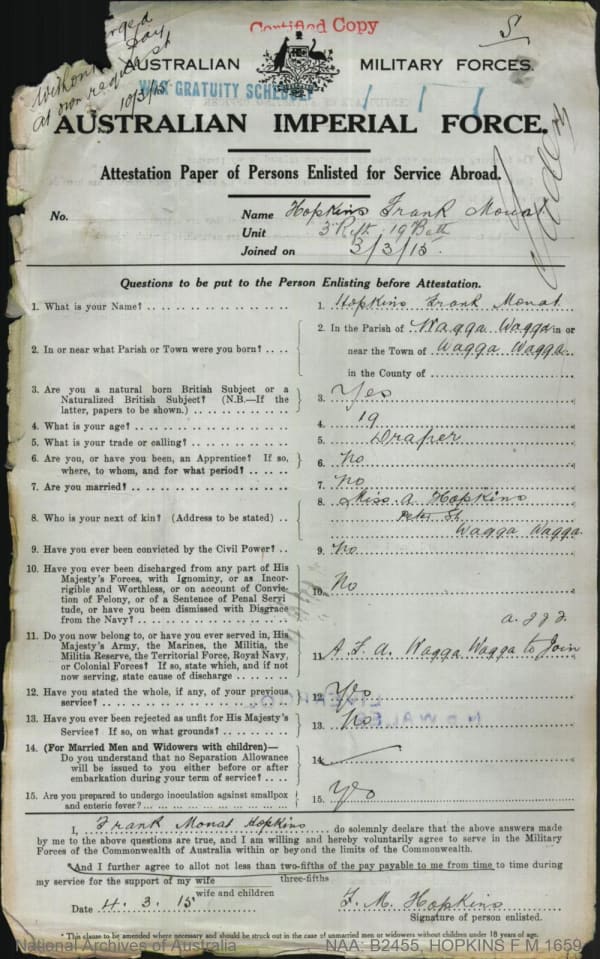 Certified Copy
S
Without
Pay
at own request
10/3/15
AUSTRALIAN MILITARY FORCES.
WAR GRATUITY SCHEDULE
AUSTRALIAN IMPERIAL FORCE.
Attestation Paper of Persons Enlisted for Service Abroad.
No. Name Hopkins Frank Monat
Unit 19 Batt
Joined on 3/3/15.
Questions to be put to the Person Enlisting before Attestation.
1. What is your Name? 1. Hopkins Frank Monat
2. In or near what Parish or Town were you born? 2. In the Parish of Wagga Wagga in or
near the Town of Wagga Wagga
in the County of
3. Are you a natural born British Subject or a
Naturalized British Subject? (N.B.—If the
latter, papers to be shown.) 3. Yes
4. What is your age? 4. 19
5. What is your trade or calling? 5. Draper
6. Are you, or have you been, an Apprentice? If so,
where, to whom, and for what period? 6. No
7. Are you married? 7. No
8. Who is your next of kin? (Address to be stated) 8. Miss A Hopkins
Peter St
Wagga Wagga
9. Have you ever been convicted by the Civil Power? 9. No
10. Have you ever been discharged from any part of His
Majesty's Forces, with Ignominy, or as Incor-
rigible and Worthless, or on account of Convic-
tion of Felony, or of a Sentence of Penal Servi
tude, or have you been dismissed with Disgrace
from the Navy? 10. No
11. Do you now belong to, or have you ever served in, His
Majesty's Army, the Marines, the Militia, the
Militia Reserve, the Territorial Force, Royal Navy,
or Colonial Forces? If so, state which, and if not
now serving, state cause of discharge 11. Wagga Wagga to Join
12. Have you stated the whole, if any, of your previous
service? 12. Yes
13. Have you ever been rejected as unfit for His Majesty's
Service? If so, on what grounds? 13. No
14. (For Married Men and Widowers with children)—
Do you understand that no Separation Allowance
will be issued to you either before or after
embarkation during your term of service? 14.
15. Are you prepared to undergo inoculation against smallpox
and enteric fever? 15. Yes
I, Frank Monat Hopkins do solemnly declare that the above answers made
by me to the above questions are true, and I am willing and hereby voluntarily agree to serve in the Military
Forces of the Commonwealth of Australia within or beyond the limits of the Commonwealth.
*And I further agree to allot not less than two-fifths of the pay payable to me from time to time during
three-fifths
my service for the support of my wife
wife and children
Date 4.3.15 F. M. Hopkins
Signature of person enlisted.
* This clause to be amended where necessary and should be struck out in the case of unmarried men or widowers without children under 18 years of age.
National Archives of Australia NAA: B2455, HOPKINS F M 1659